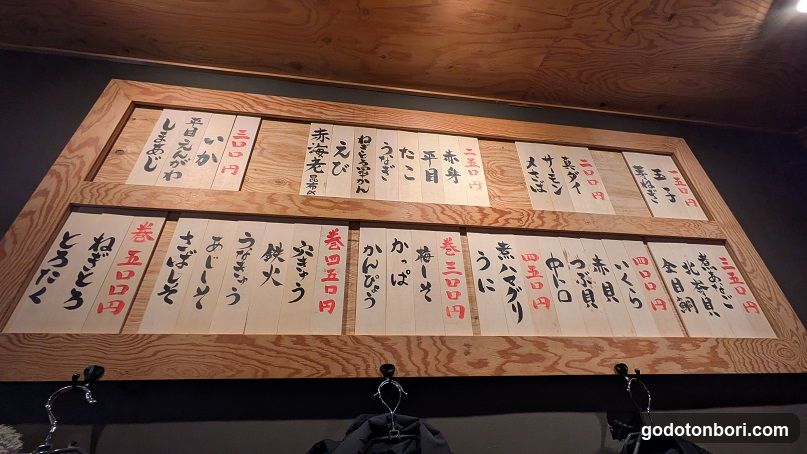 一五〇円
玉子
芽ねぎ
二〇〇円
真ダイ
サーモン
〆さば
二五〇円
赤身
平目
たこ
うなぎ
えび
赤海老
昆布〆
三〇〇円
いか
平目えんがわ
しまあじ
三五〇円
煮あなご
北寄貝
金目鯛
四〇〇円
いくら
赤貝
つぶ貝
中トロ
四五〇円
煮ハマグリ
うに
巻三〇〇円
梅しそ
かっぱ
かんぴょう
巻四五〇円
穴きゅう
鉄火
うなきゅう
あじしそ
さばしそ
巻五〇〇円
ねぎとろ
とろたく
godotonbori.com